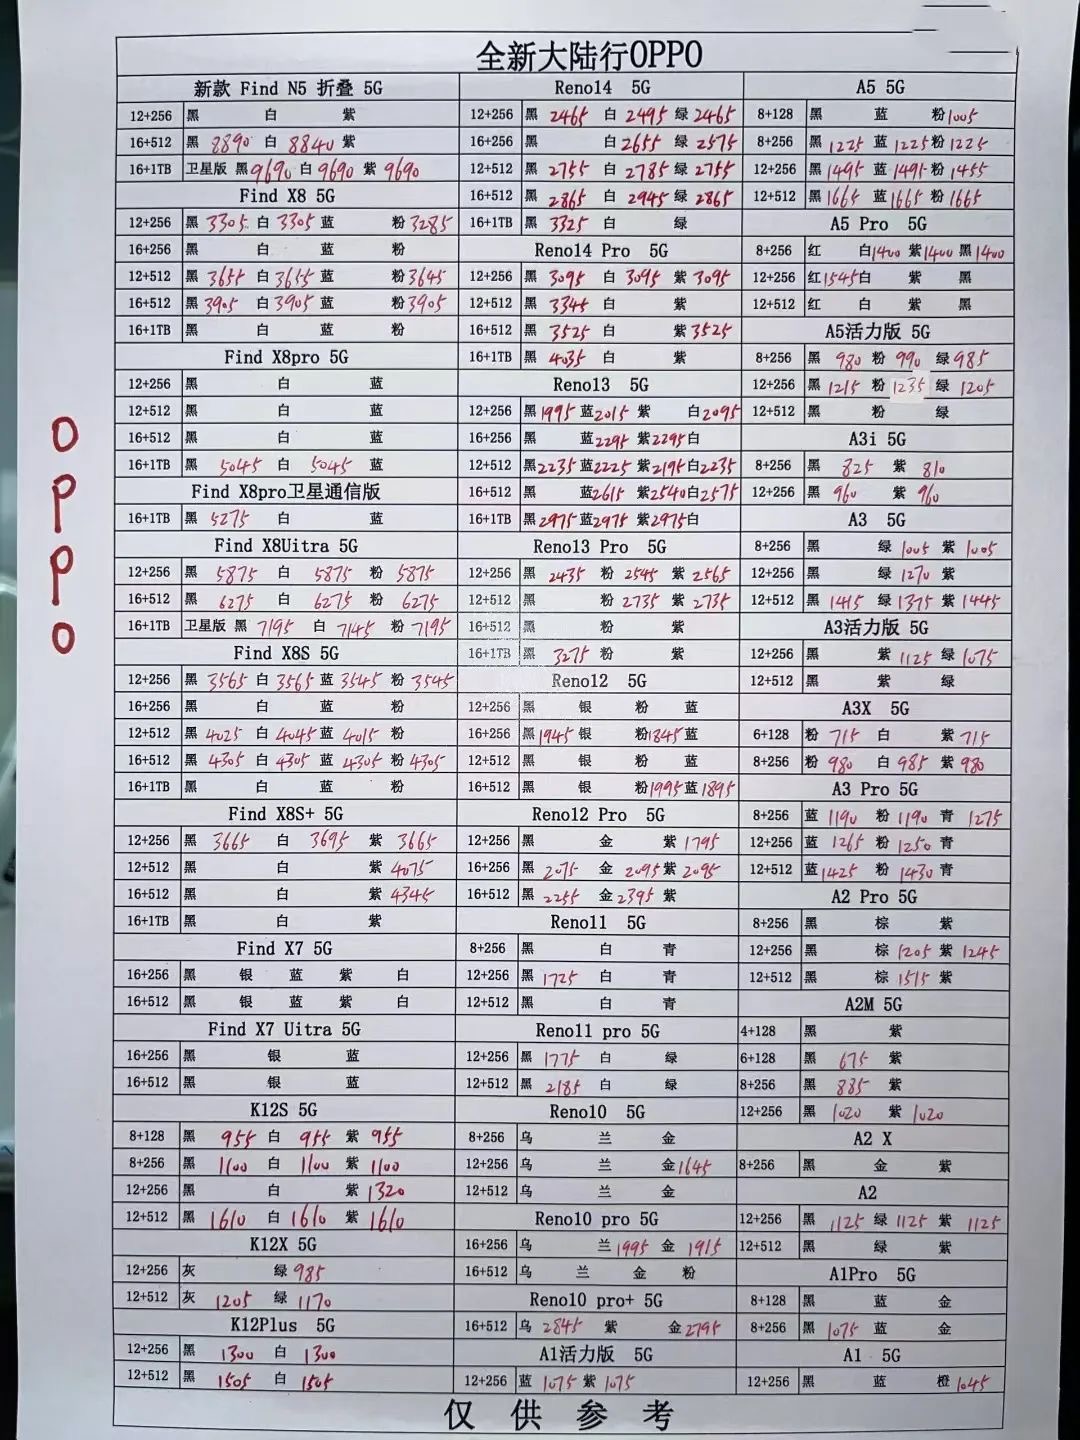 全新大陆行OPPO
OPPO
新款 Find N5 折叠 5G
12+256 黑 白 紫
16+512 黑 8890 白 8840 紫
16+1TB 卫星版 黑 9690 白 9690 紫 9690
Find X8 5G
12+256 黑 3305 白 3305 蓝 粉 3285
16+256 黑 白 蓝 粉
12+512 黑 3655 白 3655 蓝 粉 3645
16+512 黑 3905 白 3905 蓝 粉 3905
16+1TB 黑 白 蓝 粉
Find X8pro 5G
12+256 黑 白 蓝
12+512 黑 白 蓝
16+512 黑 白 蓝
16+1TB 黑 5045 白 5045 蓝
Find X8pro卫星通信版
16+1TB 黑 5275 白 蓝
Find X8Uitra 5G
12+256 黑 5875 白 5875 粉 5875
16+512 黑 6275 白 6275 粉 6275
16+1TB 卫星版 黑 7195 白 7145 粉 7195
Find X8S 5G
12+256 黑 3565 白 3565 蓝 3545 粉 3545
16+256 黑 白 蓝 粉
12+512 黑 4025 白 4045 蓝 4015 粉
16+512 黑 4305 白 4305 蓝 4305 粉 4305
16+1TB 黑 白 蓝 粉
Find X8S+ 5G
12+256 黑 3665 白 3695 紫 3665
12+512 黑 白 紫 4075
16+512 黑 白 紫 4345
16+1TB 黑 白 紫
Find X7 5G
16+256 黑 银 蓝 紫 白
16+512 黑 银 蓝 紫 白
Find X7 Uitra 5G
16+256 黑 银 蓝
16+512 黑 银 蓝
K12S 5G
8+128 黑 955 白 955 紫 955
8+256 黑 1100 白 1100 紫 1100
12+256 黑 白 紫 1320
12+512 黑 1610 白 1610 紫 1610
K12X 5G
12+256 灰 绿 985
12+512 灰 1205 绿 1170
K12Plus 5G
12+256 黑 1300 白 1300
12+512 黑 1505 白 1505
Reno14 5G
12+256 黑 2465 白 2495 绿 2465
16+256 黑 白 2655 绿 2575
12+512 黑 2755 白 2785 绿 2755
16+512 黑 2865 白 2945 绿 2865
16+1TB 黑 3325 白 绿
Reno14 Pro 5G
12+256 黑 3095 白 3095 紫 3095
12+512 黑 3345 白 紫
16+512 黑 3525 白 紫 3525
16+1TB 黑 4035 白 紫
Reno13 5G
12+256 黑 1995 蓝 2015 紫 白 2095
16+256 黑 蓝 2295 紫 2295 白
12+512 黑 2235 蓝 2225 紫 2195 白 2235
16+512 黑 蓝 2615 紫 2540 白 2575
16+1TB 黑 2975 蓝 2975 紫 2975 白
Reno13 Pro 5G
12+256 黑 2435 粉 2545 紫 2565
12+512 黑 粉 2735 紫 2735
16+512 黑 粉 紫
16+1TB 黑 3275 粉 紫
Reno12 5G
12+256 黑 银 粉 蓝
16+256 黑 1945 银 粉 1845 蓝
12+512 黑 银 粉 蓝
16+512 黑 银 粉 1995 蓝 1895
Reno12 Pro 5G
12+256 黑 金 紫 1795
16+256 黑 2075 金 2095 紫 2095
16+512 黑 2255 金 2395 紫
Reno11 5G
8+256 黑 白 青
12+256 黑 1725 白 青
12+512 黑 白 青
Reno11 pro 5G
12+256 黑 1775 白 绿
12+512 黑 2185 白 绿
Reno10 5G
8+256 乌 兰 金
12+256 乌 兰 金 1645
12+512 乌 兰 金
Reno10 pro 5G
16+256 乌 兰 1995 金 1915
16+512 乌 兰 金 粉
Reno10 pro+ 5G
16+512 乌 2845 紫 金 2795
A1活力版 5G
12+256 蓝 1075 紫 1075
A5 5G
8+128 黑 蓝 粉 1005
8+256 黑 1225 蓝 1225 粉 1225
12+256 黑 1495 蓝 1495 粉 1455
12+512 黑 1665 蓝 1665 粉 1665
A5 Pro 5G
8+256 红 白 1400 紫 1400 黑 1400
12+256 红 1545 白 紫 黑
12+512 红 白 紫 黑
A5活力版 5G
8+256 黑 980 粉 990 绿 985
12+256 黑 1215 粉 1235 绿 1205
12+512 黑 粉 绿
A3i 5G
8+256 黑 825 紫 810
12+256 黑 960 紫 960
A3 5G
8+256 黑 绿 1005 紫 1005
12+256 黑 绿 1270 紫
12+512 黑 1415 绿 1375 紫 1445
A3活力版 5G
12+256 黑 紫 1125 绿 1075
12+512 黑 紫 绿
A3X 5G
6+128 粉 715 白 紫 715
8+256 粉 980 白 985 紫 980
A3 Pro 5G
8+256 蓝 1190 粉 1190 青 1275
12+256 蓝 1265 粉 1250 青
12+512 蓝 1425 粉 1430 青
A2 Pro 5G
8+256 黑 棕 紫
12+256 黑 棕 1205 紫 1245
12+512 黑 棕 1515 紫
A2M 5G
4+128 黑 紫
6+128 黑 675 紫
8+256 黑 885 紫
12+256 黑 1020 紫 1020
A2 X
8+256 黑 金 紫
A2
12+256 黑 1125 绿 1125 紫 1125
12+512 黑 绿 紫
A1Pro 5G
8+128 黑 蓝 金
8+256 黑 1075 蓝 金
A1 5G
12+256 黑 蓝 橙 1045
仅供参考